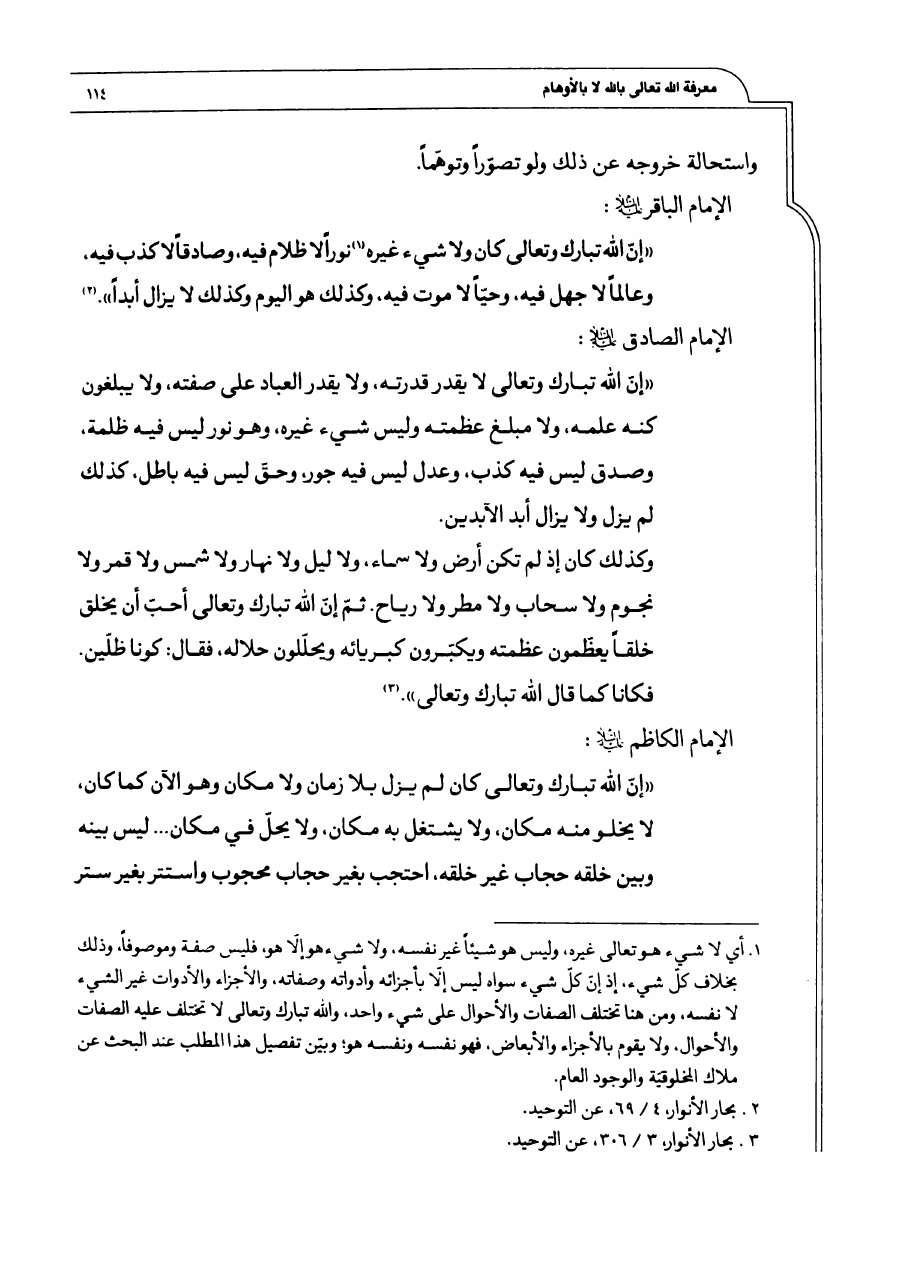 معرفة الله تعالى بالله لا بالأوهام
١١٤
واستحالة خروجه عن ذلك ولو تصوّراً وتوهّماً.
الإمام الباقر عليه السلام :
«إنّ الله تبارك وتعالى كان ولا شيء غيره(١) نوراً لا ظلام فيه، وصادقاً لا كذب فيه،
وعالماً لا جهل فيه، وحيّاً لا موت فيه، وكذلك هو اليوم وكذلك لا يزال أبداً».(٢)
الإمام الصادق عليه السلام :
«إنّ الله تبارك وتعالى لا يقدر قدرته، ولا يقدر العباد على صفته، ولا يبلغون
كنه علمه، ولا مبلغ عظمته وليس شيء غيره، وهو نور ليس فيه ظلمة،
وصدق ليس فيه كذب، وعدل ليس فيه جور، وحقّ ليس فيه باطل، كذلك
لم يزل ولا يزال أبد الآبدين.
وكذلك كان إذ لم تكن أرض ولا سماء، ولا ليل ولا نهار ولا شمس ولا قمر ولا
نجوم ولا سحاب ولا مطر ولا رياح. ثمّ إنّ الله تبارك وتعالى أحبّ أن يخلق
خلقاً يعظّمون عظمته ويكبّرون كبريائه ويحلّلون حلاله، فقال: كونا ظلّين.
فكانا كما قال الله تبارك وتعالى».(٣)
الإمام الكاظم عليه السلام :
«إنّ الله تبارك وتعالى كان لم يزل بلا زمان ولا مكان وهو الآن كما كان،
لا يخلو منه مكان، ولا يشتغل به مكان، ولا يحلّ في مكان... ليس بينه
وبين خلقه حجاب غير خلقه، احتجب بغير حجاب محجوب واستتر بغير ستر
١. أي لا شيء هو تعالى غيره، وليس هو شيئاً غير نفسه، ولا شيء هو إلّا هو، فليس صفة وموصوفاً، وذلك
بخلاف كلّ شيء، إذ إنّ كلّ شيء سواه ليس إلّا بأجزائه وأدواته وصفاته، والأجزاء والأدوات غير الشيء
لا نفسه، ومن هنا تختلف الصفات والأحوال على شيء واحد، والله تبارك وتعالى لا تختلف عليه الصفات
والأحوال، ولا يقوم بالأجزاء والأبعاض، فهو نفسه ونفسه هو؛ وبيّن تفصيل هذا المطلب عند البحث عن
ملاك المخلوقيّة والوجود العام.
٢. بحار الأنوار، ٤ / ٦٩، عن التوحيد.
٣. بحار الأنوار، ٣ / ٣٠٦، عن التوحيد.